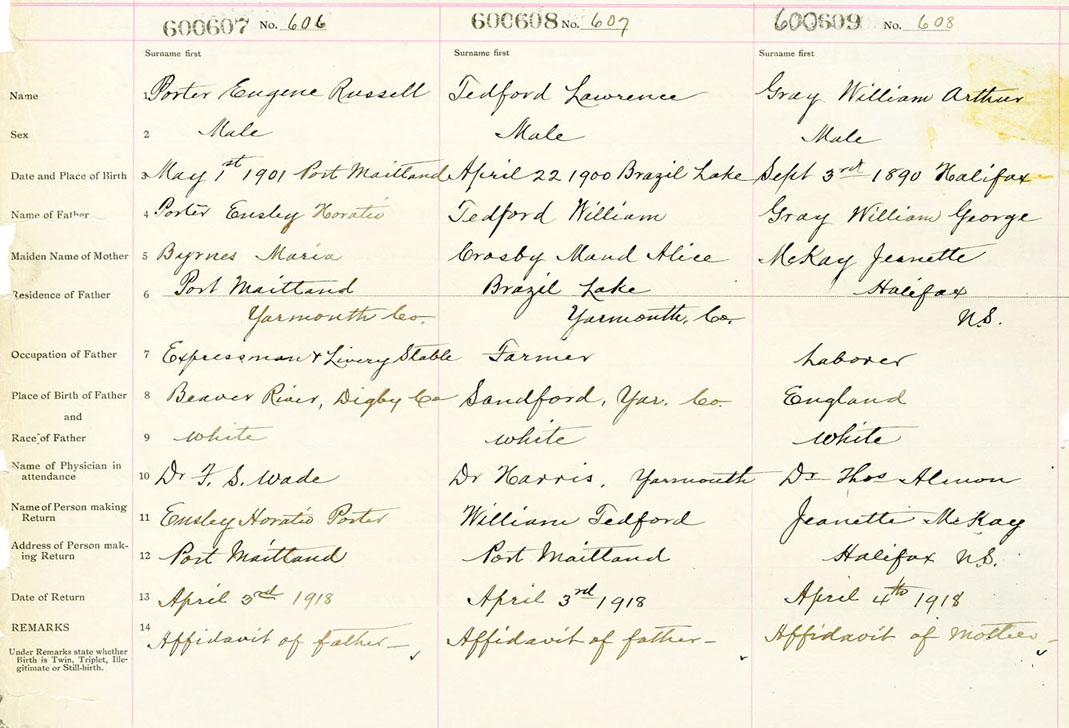 600607 No. 606 600608 No. 607 600609 No. 608
Surname first Surname first Surname first
Name 1 Porter Eugene Russell Tedford Lawrence Gray William Arthur
Sex 2 Male Male Male
Date and Place of Birth 3 May 1st 1901 Port Maitland April 22 1900 Brazil Lake Sept 3rd 1890 Halifax
Name of Father 4 Porter Ensley Horatio Tedford William Gray William George
Maiden Name of Mother 5 Byrnes Maria Crosby Maud Alice McKay Jeanette
Residence of Father 6 Port Maitland Brazil Lake Halifax
Yarmouth Co. Yarmouth, Co. N.S.
Occupation of Father 7 Expressman & Livery Stable Farmer Laborer
Place of Birth of Father 8 Beaver River, Digby Co Sandford, Yar. Co. England
and
Race of Father 9 White White White
Name of Physician in
attendance 10 Dr F. S. Wade Dr Harris, Yarmouth Dr Thos Almon
Name of Person making
Return 11 Ensley Horatio Porter William Tedford Jeanette McKay
Address of Person mak-
ing Return 12 Port Maitland Port Maitland Halifax N.S.
Date of Return 13 April 3rd 1918 April 3rd 1918 April 4th 1918
REMARKS 14 Affidavit of father— Affidavit of father— Affidavit of Mother—
Under Remarks state whether
Birth is Twin, Triplet, Ille-
gitimate or Still-birth.